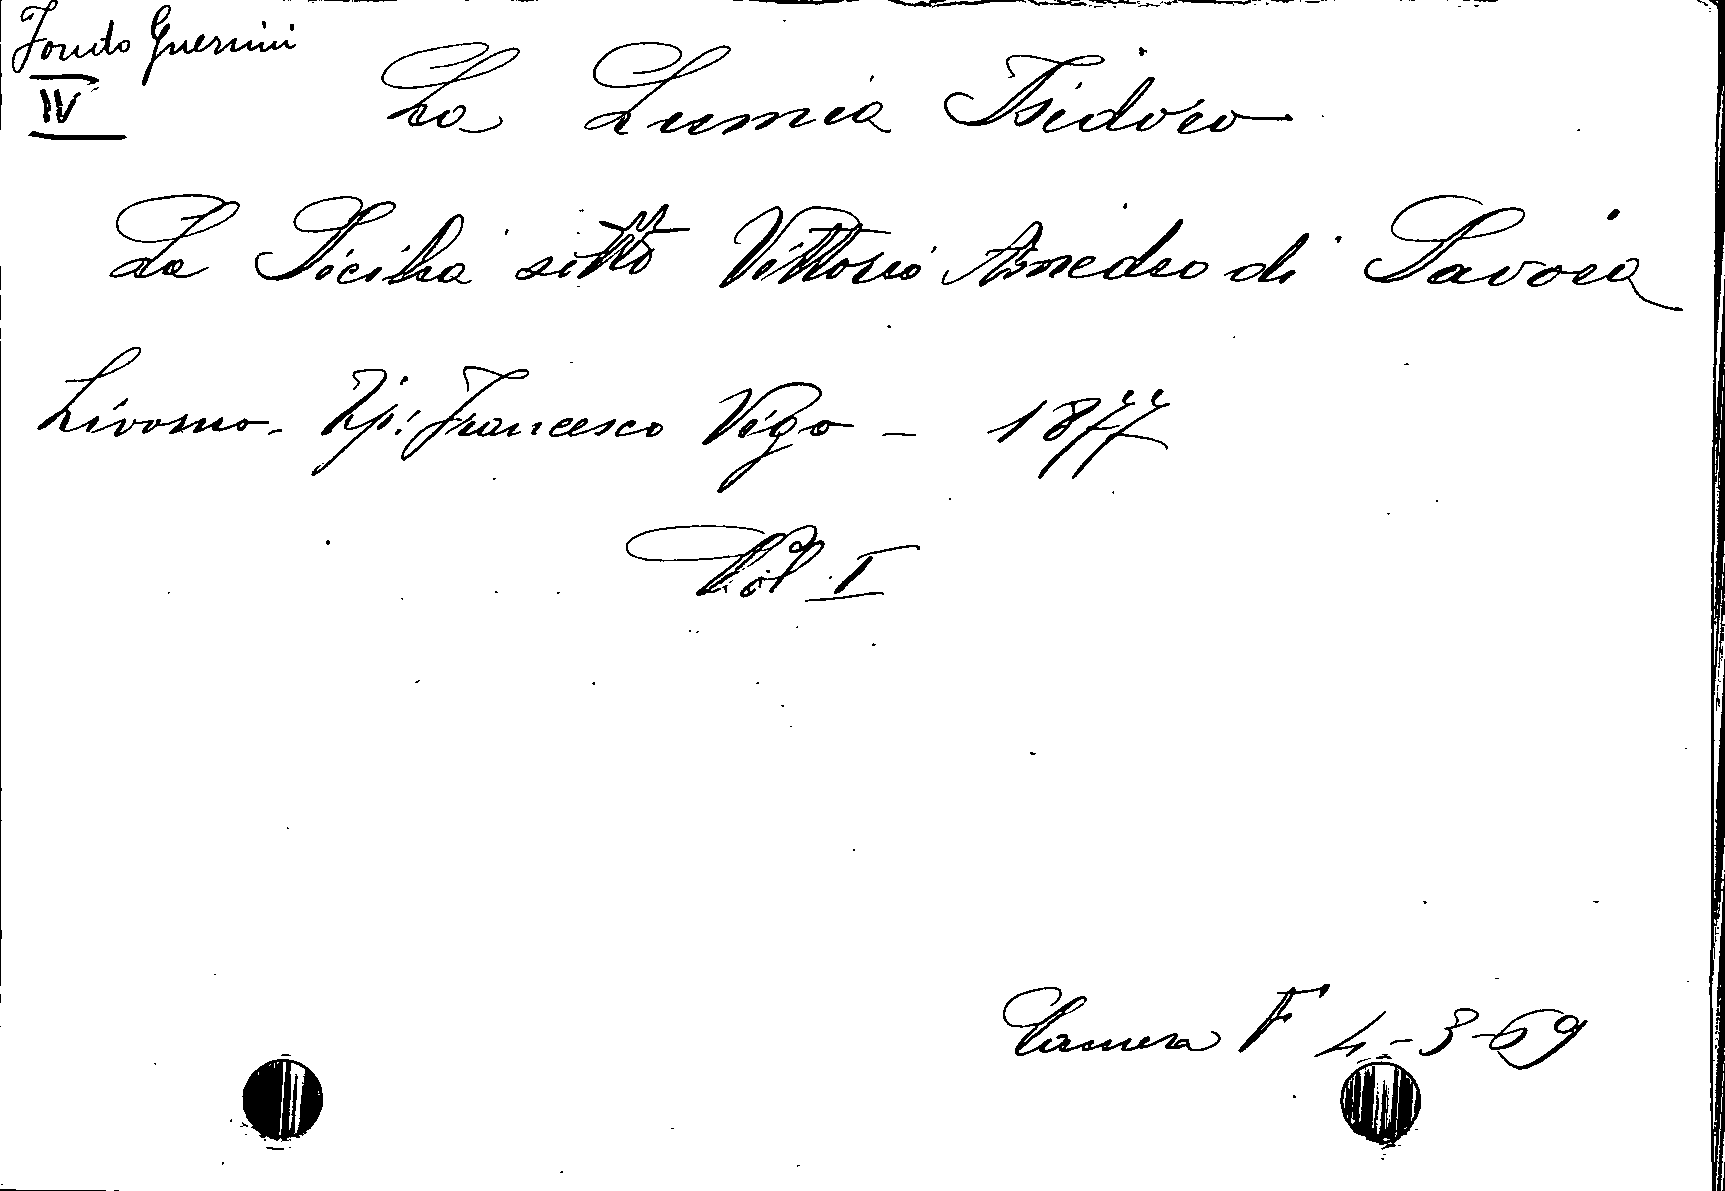 Fondo Guerrini
IV
La Lumia Isidoro
La Sicilia sotto Vittorio Amedeo di Savoia
Livorno - Tip: Francesco Vigo - 1877
Vol. I
Camera F 4-3-69